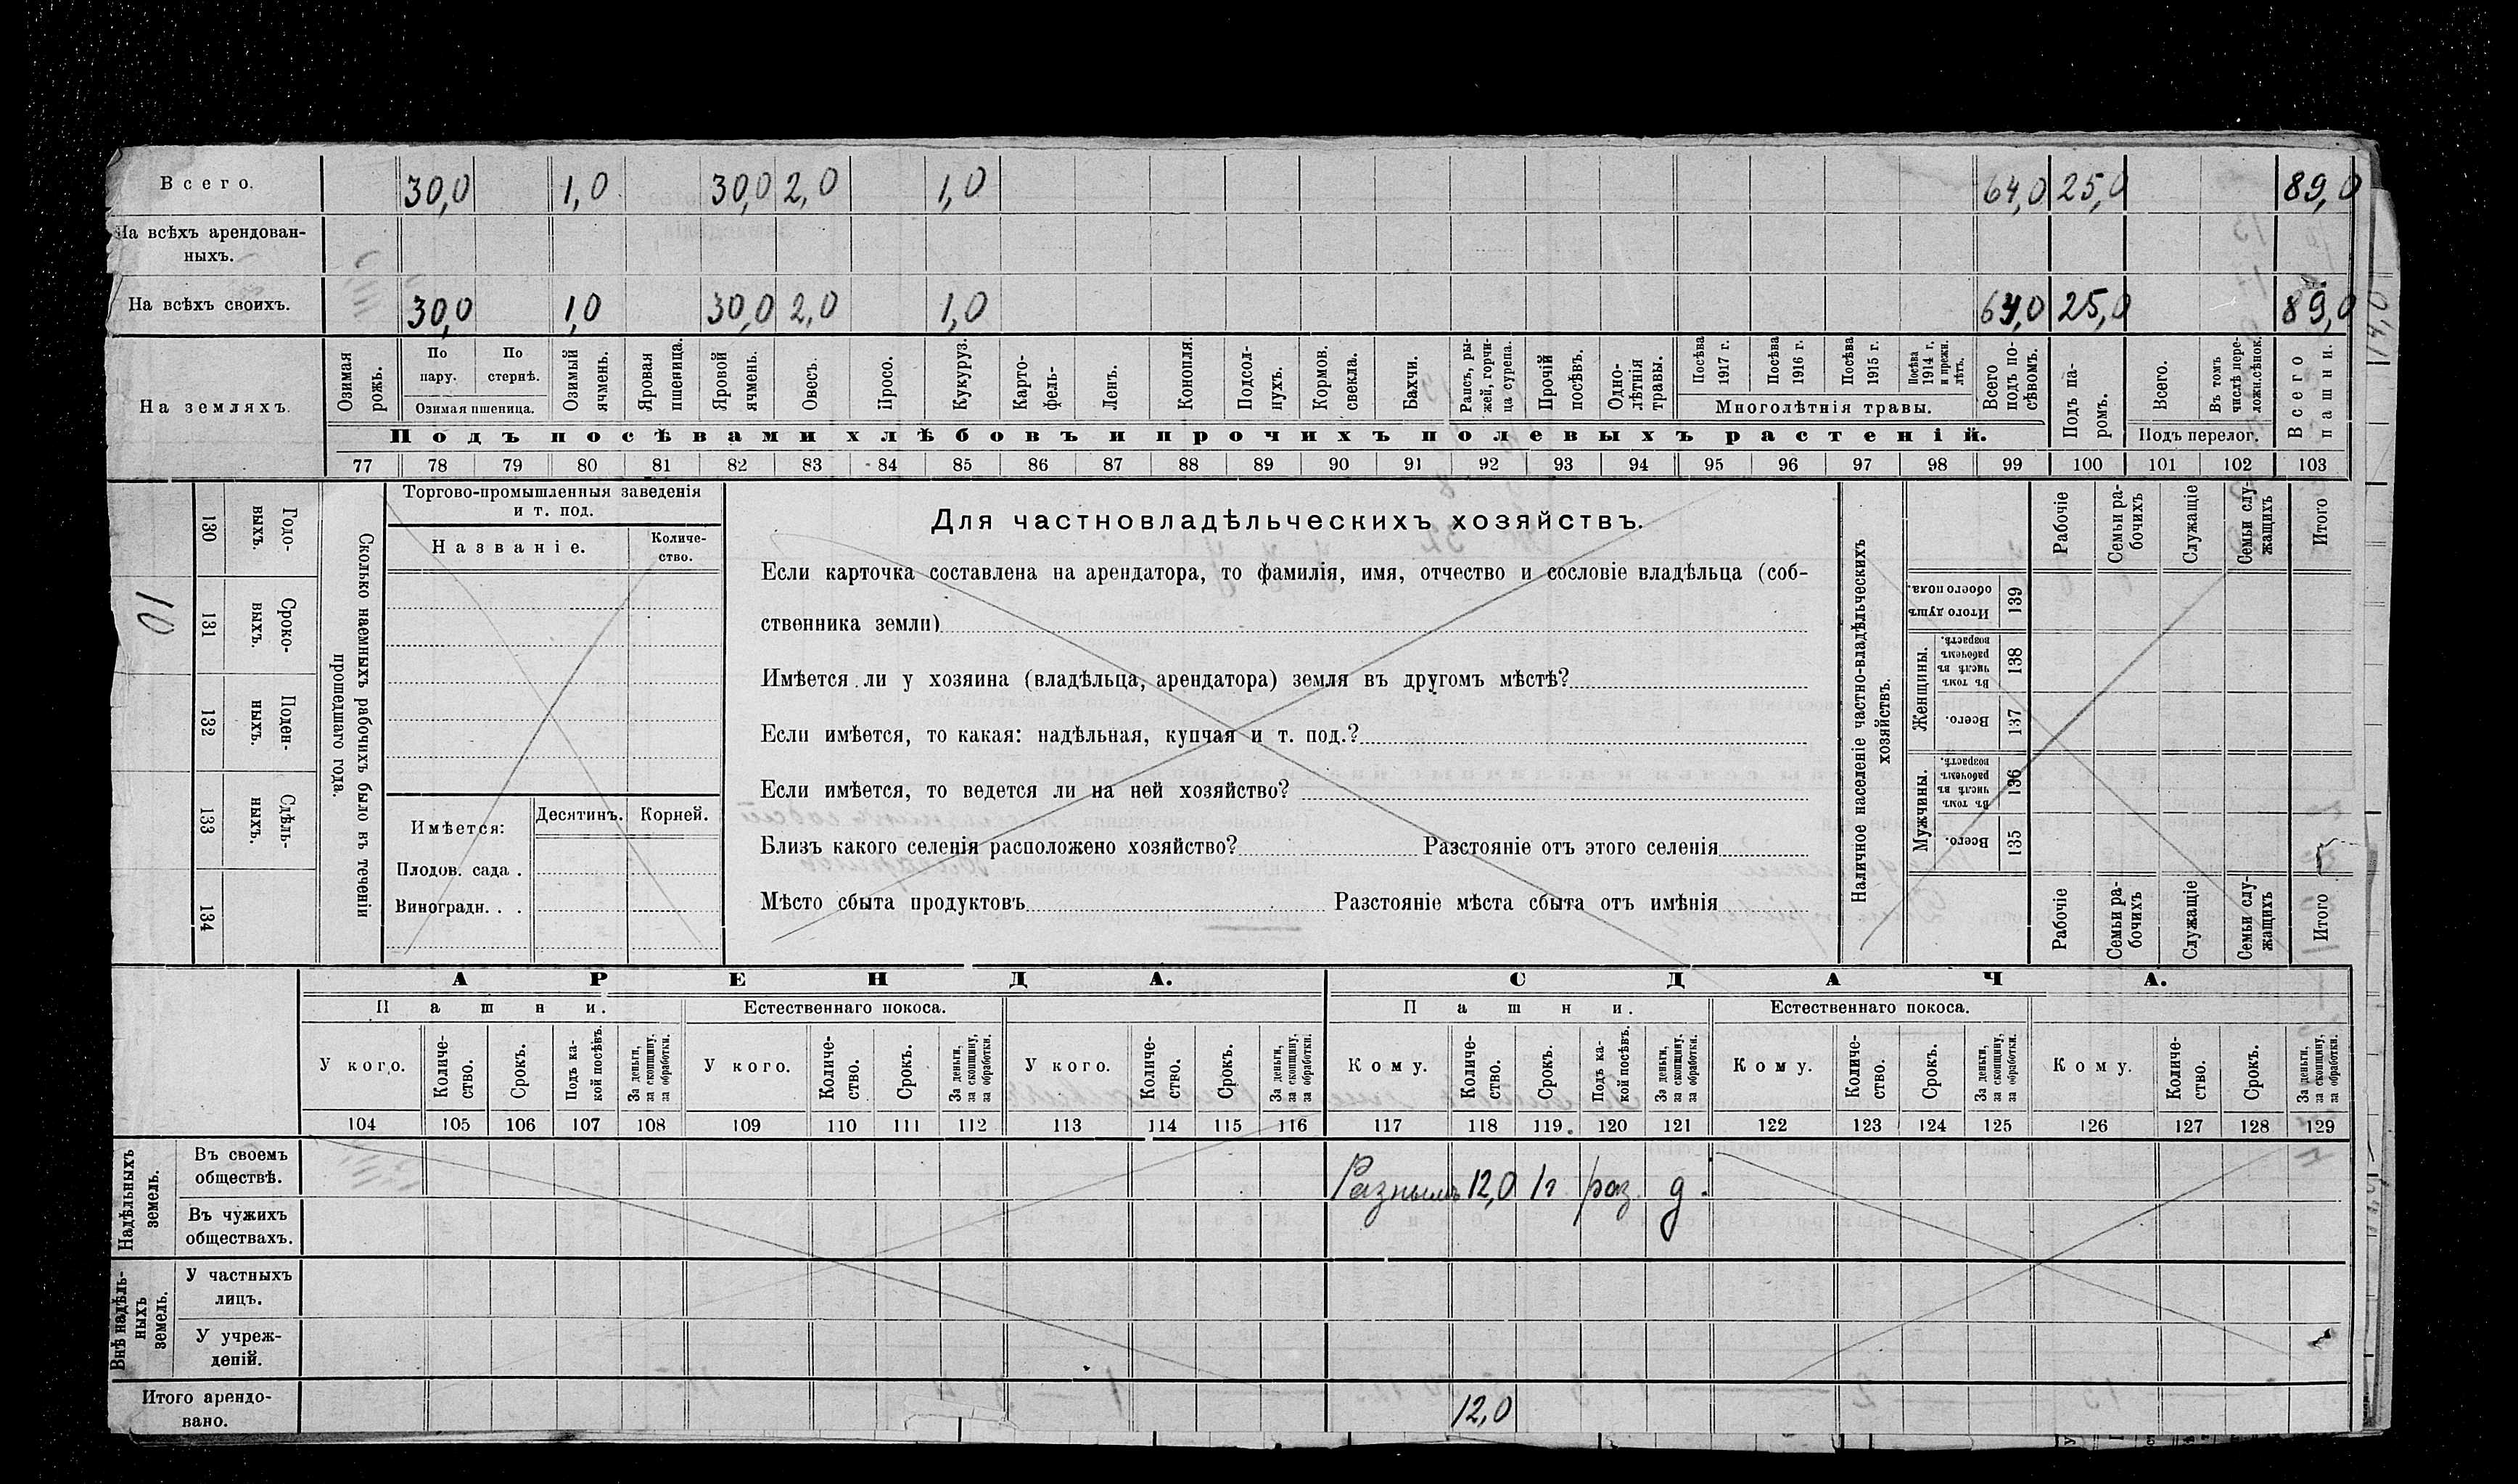 Всего. 30,0 1,0 30,0 2,0 1,0 64,0 25,0 89,0
На всѣхъ арендован-
ныхъ.
На всѣхъ своихъ. 30,0 1,0 30,0 2,0 1,0 64,0 25,0 89,0
14,0
На земляхъ.
Озимая рожь.
По пару.
По стернѣ.
Озимая пшеница.
Озимый ячмень.
Яровая пшеница.
Яровой ячмень.
Овесъ.
Просо.
Кукуруз.
Карто-
фель-
Ленъ.
Конопля.
Подсол-
нухъ.
Кормов.
свекла.
Бахчи.
Рапсъ, ры-
жей, горчи-
ца сурепа.
Прочій
посѣвъ.
Одно-
лѣтнія
травы.
Посѣва
1917 г.
Посѣва
1916 г.
Посѣва
1915 г.
Посѣва
1914 г.
и прежн.
лѣтъ.
Многолѣтнія травы.
Всего
подъ по-
сѣвомъ.
Подъ па-
ромъ.
Всего.
Въ томъ
числѣ пере-
ложн.сѣнок.
Подъ перелог.
Всего
пашни.
Подъ посѣвами хлѣбовъ и прочихъ полевыхъ растеній.
77 78 79 80 81 82 83 84 85 86 87 88 89 90 91 92 93 94 95 96 97 98 99 100 101 102 103
10
130 131 132 133 134
Годо-
выхъ.
Сроко-
выхъ.
Поден-
ныхъ.
Сдѣль-
ныхъ.
Сколько наемныхъ рабочихъ было въ теченіи
прошедшаго года.
Торгово-промышленныя заведенія
и т. под.
Названіе.
Количе-
ство.
Имѣется:
Десятинъ.
Корней.
Плодов. сада .
Виноградн. . .
Для частновладѣльческихъ хозяйствъ.
Если карточка составлена на арендатора, то фамилія, имя, отчество и сословіе владѣльца (соб-
ственника земли)
Имѣется ли у хозяина (владѣльца, арендатора) земля въ другомъ мѣстѣ?
Если имѣется, то какая: надѣльная, купчая и т. под.?
Если имѣется, то ведется ли на ней хозяйство?
Близъ какого селенія расположено хозяйство? Разстояніе отъ этого селенія
Мѣсто сбыта продуктовъ Разстояніе мѣста сбыта отъ имѣнія
Наличное населеніе частно-владѣльческихъ
хозяйствъ.
Рабочіе
Семьи ра-
бочихъ
Служащіе
Семьи слу-
жащихъ
Итого
Итого душъ
обоего пола.
139
Женщины.
Въ томъ
числѣ въ
рабочемъ
возрастѣ.
138
Всего.
137
Мужчины.
Въ томъ
числѣ въ
рабочемъ
возрастѣ.
136
Всего.
135
Рабочіе
Семьи ра-
бочихъ
Служащіе
Семьи слу-
жащихъ
Итого
АРЕНДА. СДАЧА.
Пашни. Естественнаго покоса. Пашни. Естественнаго покоса.
У кого.
Количе-
ство.
Срокъ.
Подъ ка-
кой посѣвъ.
За деньги,
за скопщину,
за обработки.
У кого.
Количе-
ство.
Срокъ.
За деньги,
за скопщину,
за обработки.
У кого.
Количе-
ство.
Срокъ.
За деньги,
за скопщину,
за обработки.
Кому.
Количе-
ство.
Срокъ.
Подъ ка-
кой посѣвъ.
За деньги,
за скопщину,
за обработки.
Кому.
Количе-
ство.
Срокъ.
За деньги,
за скопщину,
за обработки.
Кому.
Количе-
ство.
Срокъ.
За деньги,
за скопщину,
за обработки.
104 105 106 107 108 109 110 111 112 113 114 115 116 117 118 119 120 121 122 123 124 125 126 127 128 129
Надѣльныхъ
земель.
Въ своемъ
обществѣ.
Разнымъ 12,0 1г раз. д.
Въ чужихъ
обществахъ.
Внѣ надѣль-
ныхъ
земель.
У частныхъ
лицъ.
У учреж-
деній.
Итого арендо-
вано.
12,0